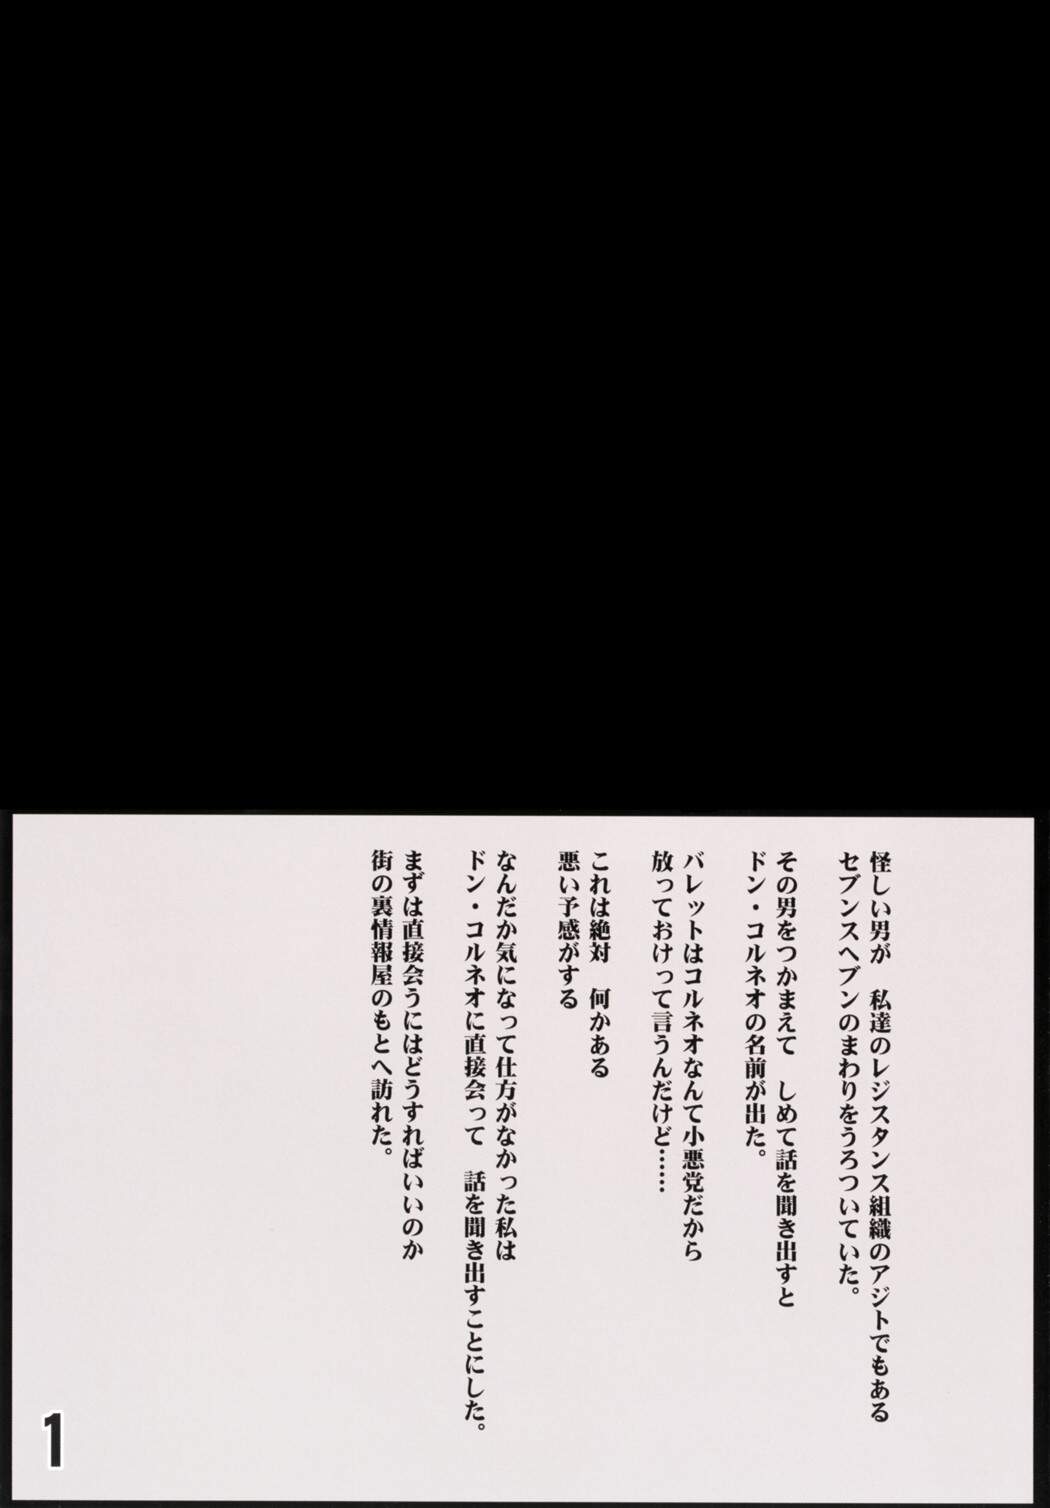 怪しい男が　私達のレジスタンス組織のアジトでもある
セブンスヘブンのまわりをうろついていた。
その男をつかまえて　しめて話を聞き出すと
ドン・コルネオの名前が出た。
バレットはコルネオなんて小悪党だから
放っておけって言うんだけど……
これは絶対　何かある
悪い予感がする
なんだか気になって仕方がなかった私は
ドン・コルネオに直接会って　話を聞き出すことにした。
まずは直接会うにはどうすればいいのか
街の裏情報屋のもとへ訪れた。
1